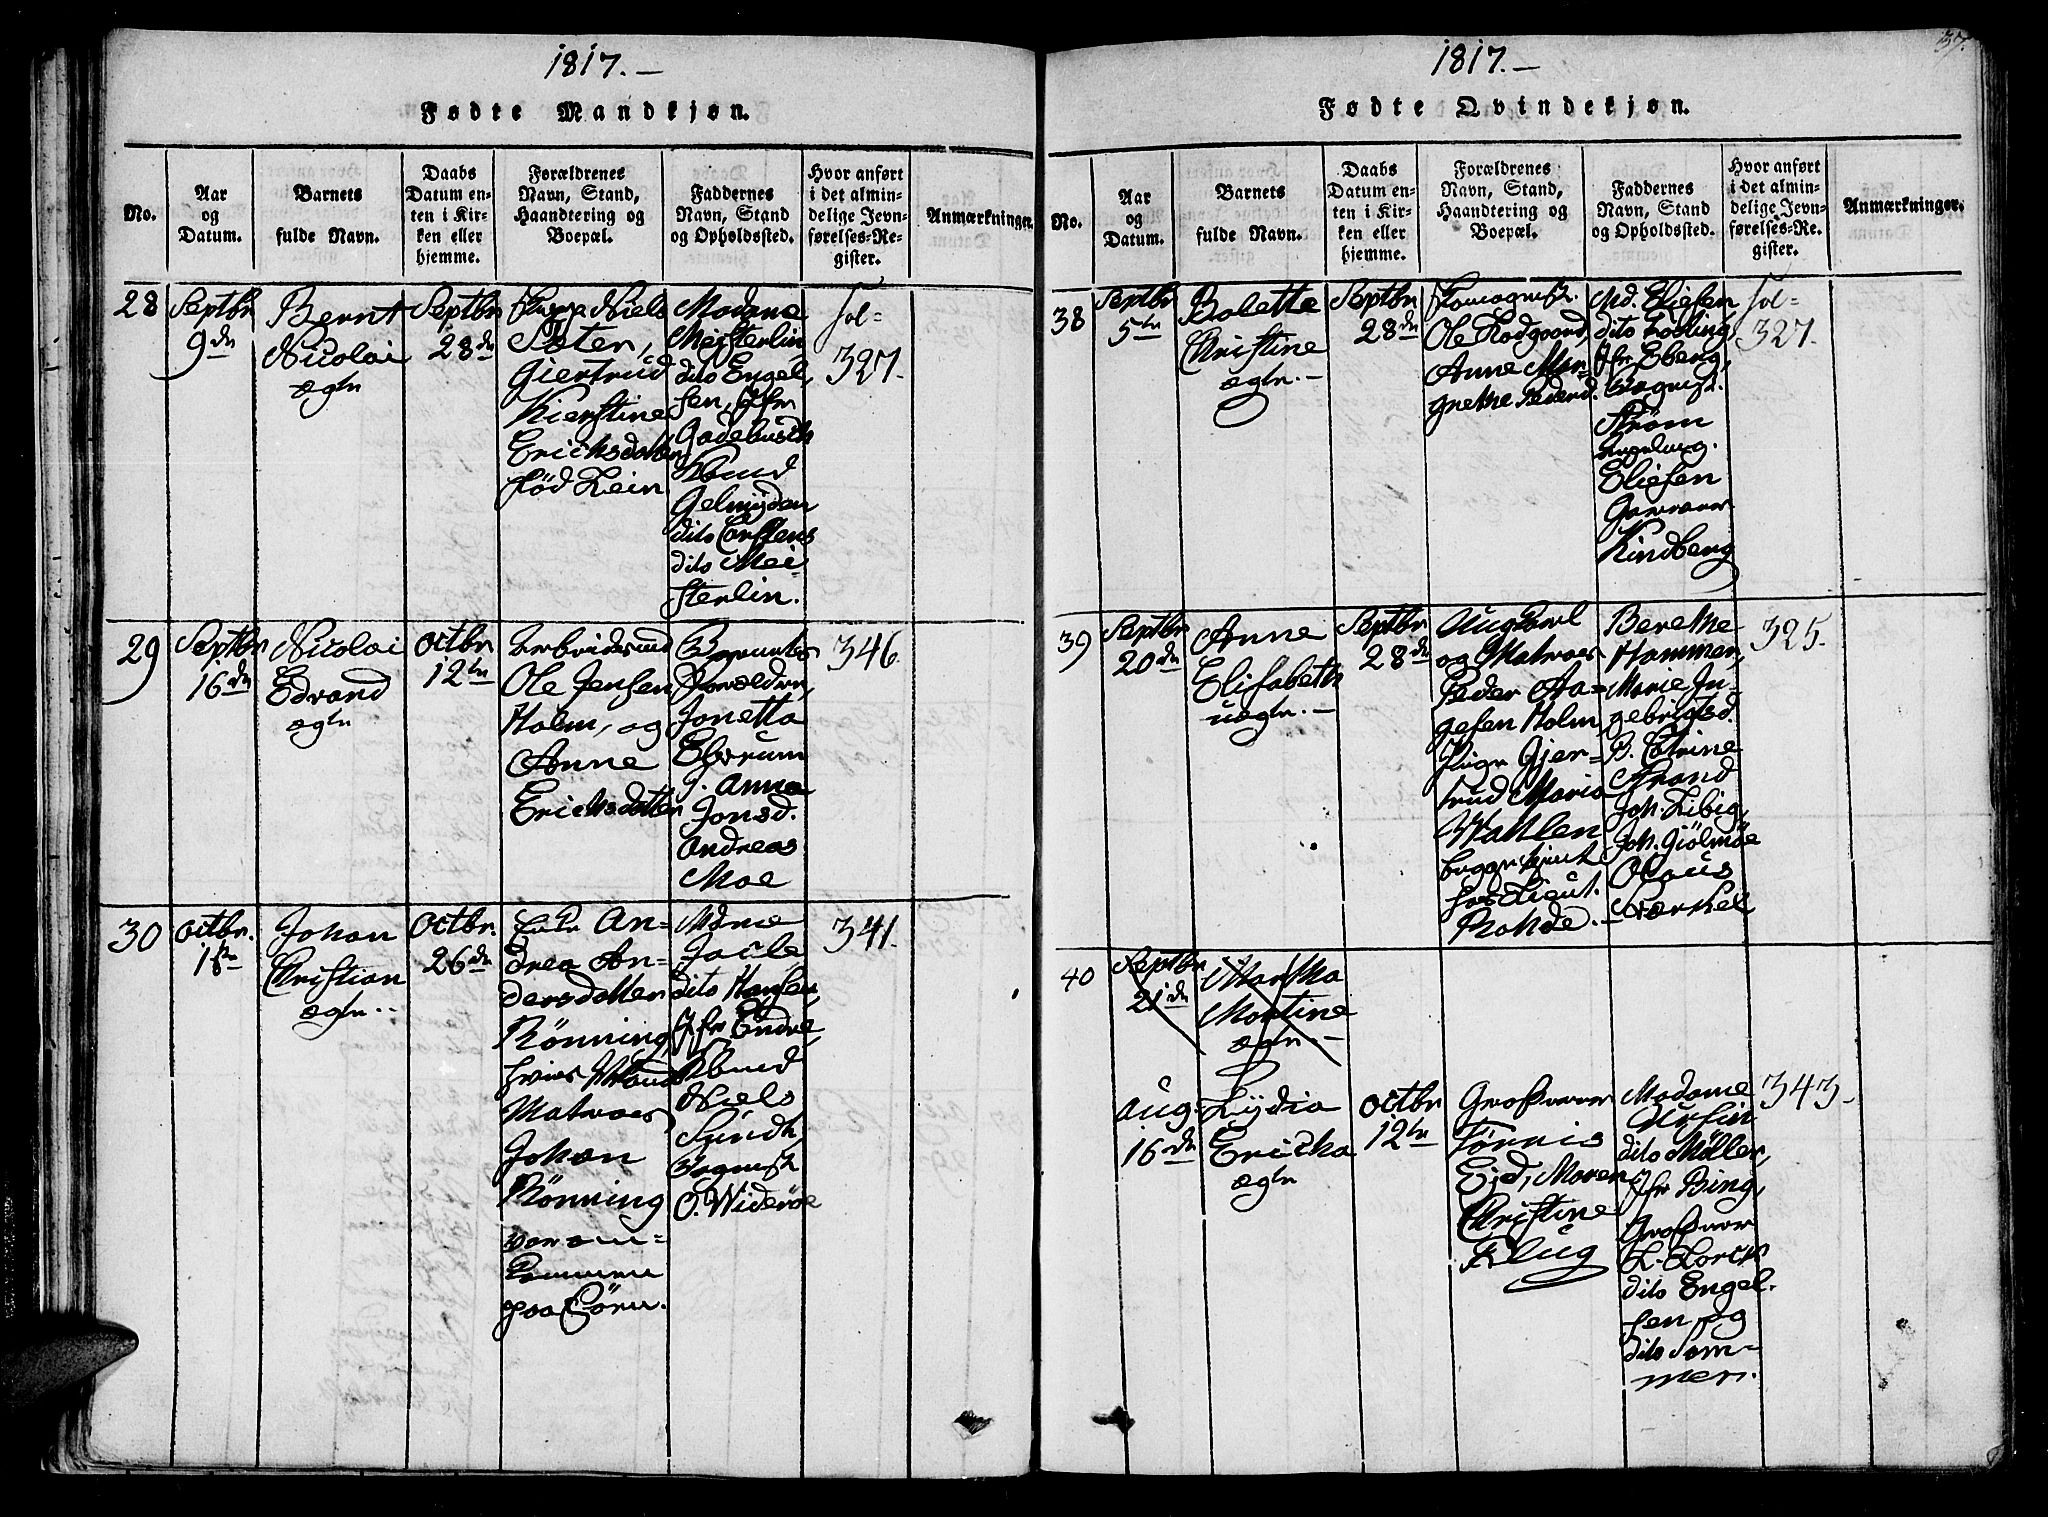 1817.
Fødte Mandkjøn.
No.
Aar
og
Datum.
Barnets
fulde Navn.
Daabs
Datum en-
ten i Kir-
ken eller
hjemme.
Forældrenes
Navn, Stand,
Haandtering og
Boepæl.
Faddernes
Navn, Stand
og Opholdssted.
Hvor anført
i det almin-
delige Jevn-
førelses-Re-
gister.
Anmærkninger.
28
Septbr
9de
Bernt
Nicolai
ægte
Septbr
28de
Niels
Peter,
Giertrud
Kierstine
Ericksdatter
fød Lein
Madame
Meisterlin
dito Engel,
sen, Jfr
Gadebusch
Knud
Gelmüyden
dito Carstens
dito Mei
sterlin.
fol-
327.
29
Septbr
16de
Nicolai
Edvard
ægte
Octbr
12te
Arbeidsmd
Ole Jensen
Holm, og
Anne
Ericksdatter
Barnets
Forældre,
Jonetta
J. Anna
Jonsd.
Andreas
Moe
346.
30
Octbr.
1ste
Johan
Christian
ægte.
Octbr.
26de
Enke An-
drea An-
dersdatter
Rønning,
hvis Mand
Matroes
Johan
Rønning
var om-
kommen
paa Søen.
Mdme
Jacle
dito Hansen,
Jfr Endre,
Knud
Niels
Sundt,
Vognmst.
O. Widerøe
341.
1817.
37.
Fødte Qvindekjøn.
No.
Aar
og
Datum.
Barnets
fulde Navn.
Daabs
Datum en-
ten i Kir-
ken eller
hjemme.
Forældrenes
Navn, Stand,
Haandtering og
Boepæl.
Faddernes
Navn, Stand
og Opholdssted.
Hvor anført
i det almin-
delige Jevn-
førelses-Re-
gister.
Anmærkninger.
38
Septbr
5te
Bolette
Christine
ægte.
Septbr
28de
Ole Rodgaard,
Anne Mar-
grethe Pedersd.
Md. Eliesen
dito Lossing,
Jfr Eberg,
Vognmst.
Strøm
Eliesen
Garvaer
Kindberg
fol-
327.
39
Septbr
20de
Anne
Elisabeth
uægte.
Septbr
28de
Ungkarl
og Matroes
Peder Aa-
gesen Holm
Pige Gjer-
trud Maria
Wahlen
begge tjent
hos Lieut.
Rohde.
Berethe
Hammer,
Marie In-
gebrigtsd.
B. Catrine
Strand
Joh. Libig,
Joh. Giølmøe
Olaus
Værkel
325.
40
Septbr
21de
Martha
Martine
ægte.
Aug.
16de
Lydia
Ericka
ægte
Octbr
12te
Grosserer
Tønnis
Eyd, Maren
Christine
Klug
Madame
Ursin
dito Møller,
Jfr Bing,
Grosserer
L. Lorck
dito Engel.
sen, og
dito Som-
mer.
343.